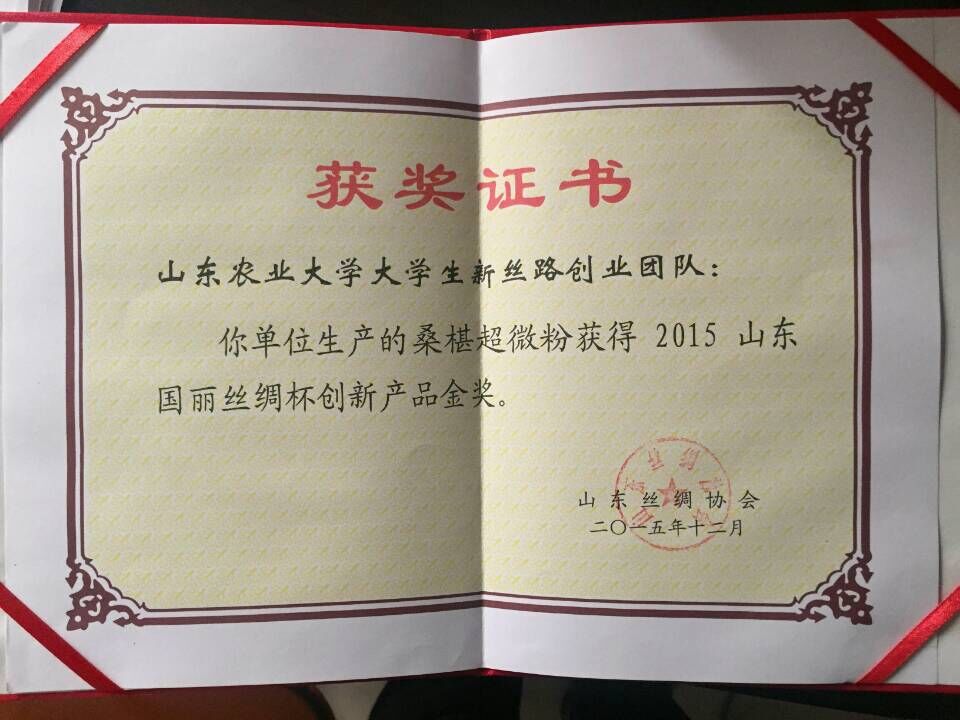 获奖证书
山东农业大学大学生新丝路创业团队：
你单位生产的桑椹超微粉获得 2015 山东
国丽丝绸杯创新产品金奖。
山东丝绸协会
二〇一五年十二月